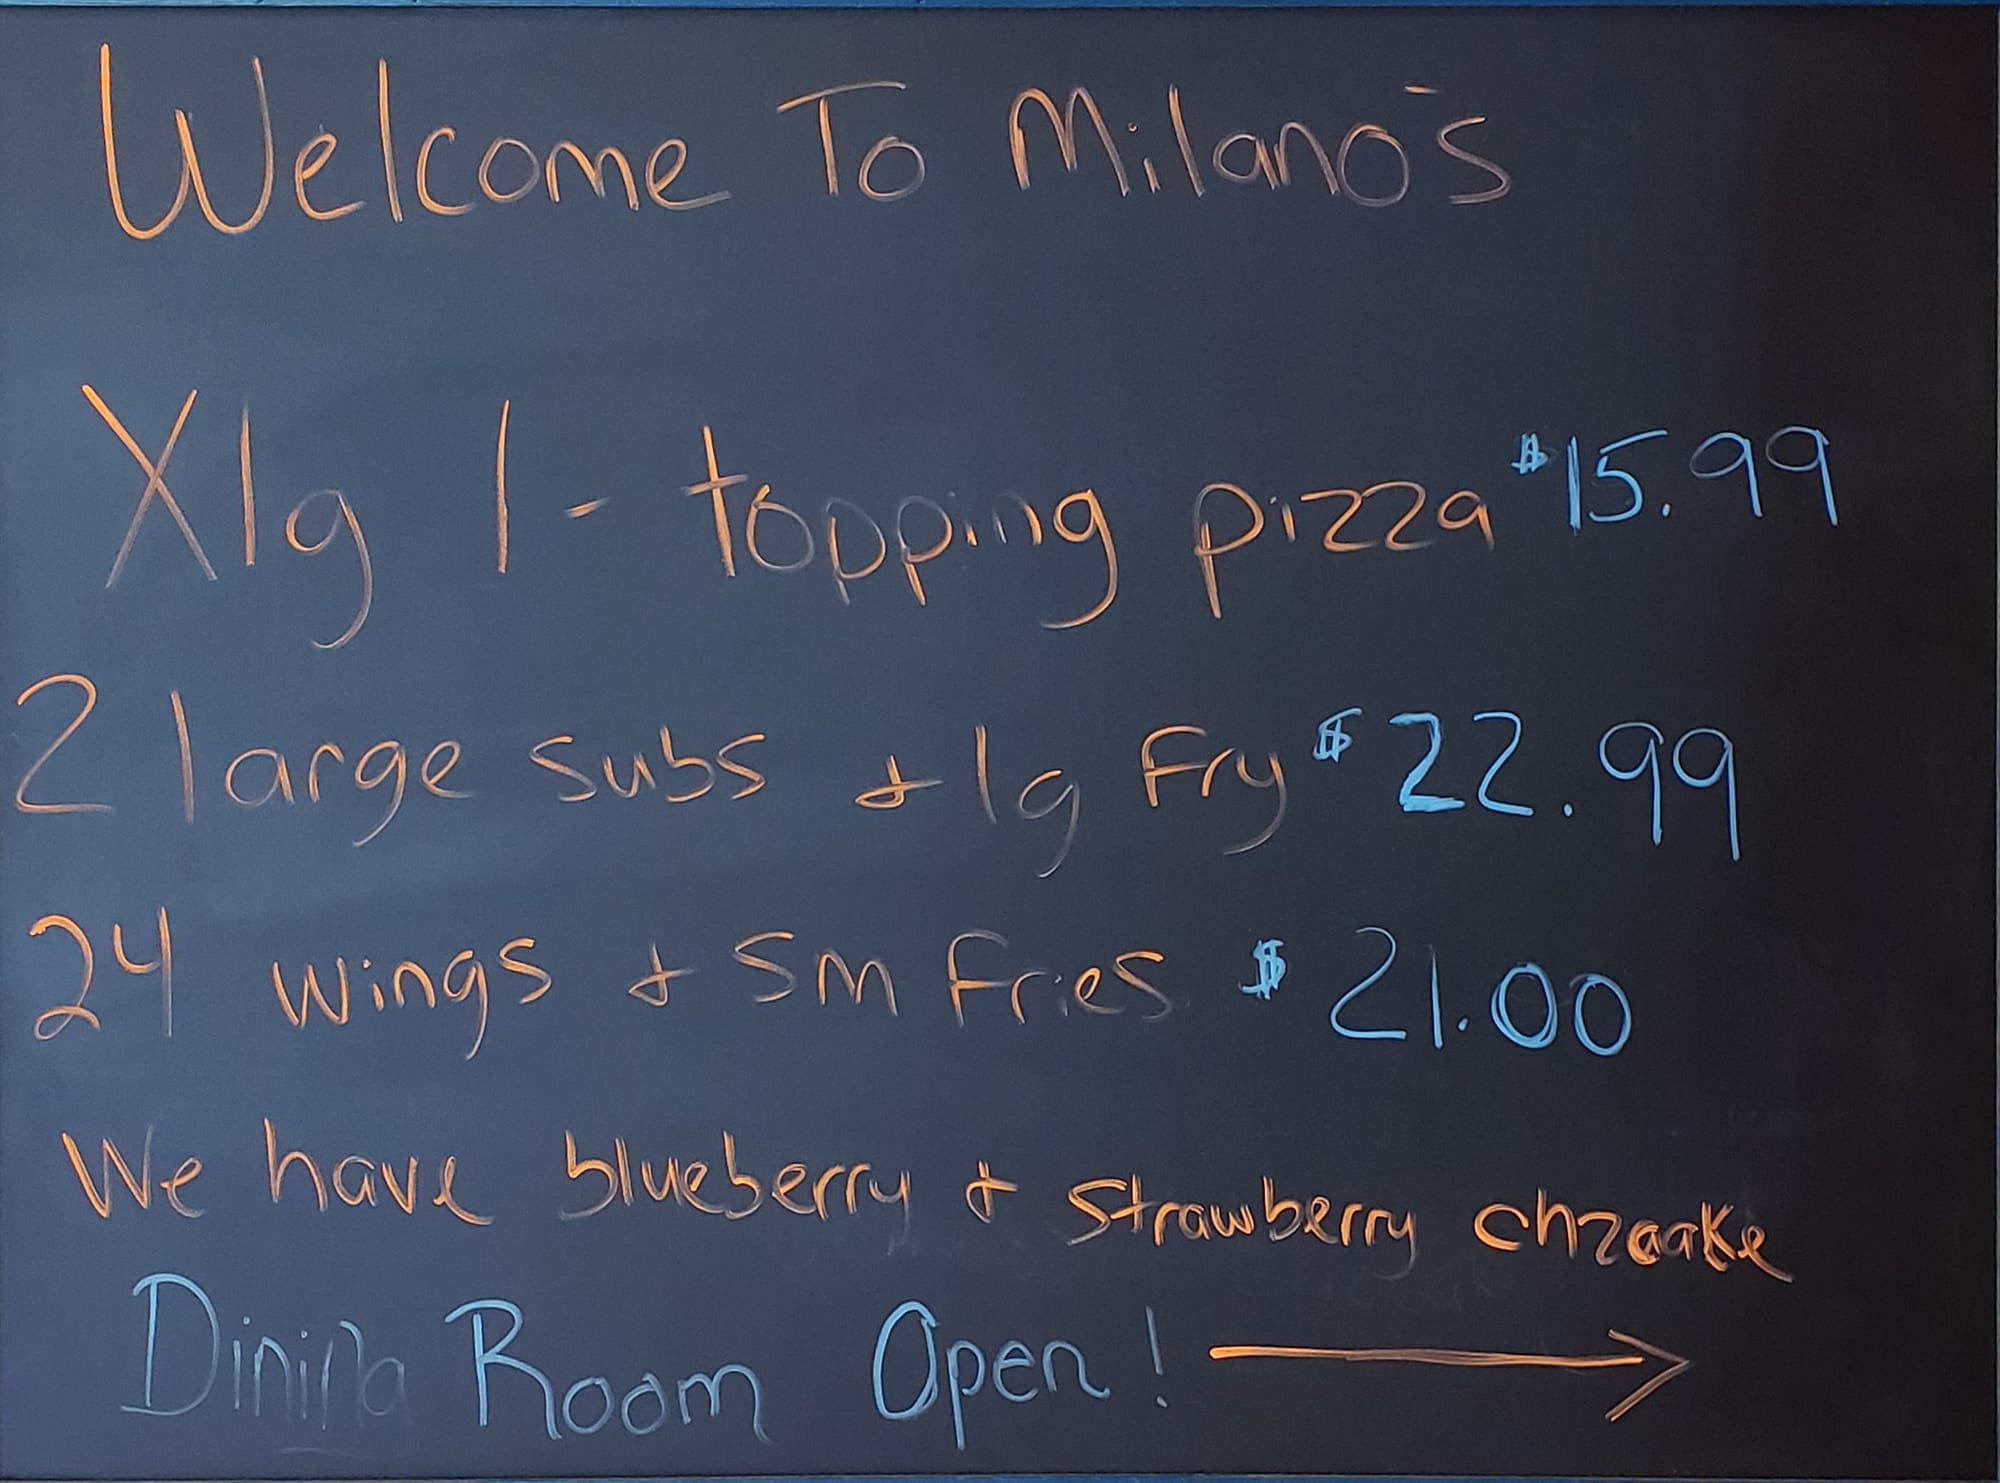 Welcome To Milano's
Xlg 1- topping pizza $15.99
2 large subs + lg Fry $22.99
24 wings + Sm Fries $21.00
We have blueberry + Strawberry chzcake
Dining Room Open!